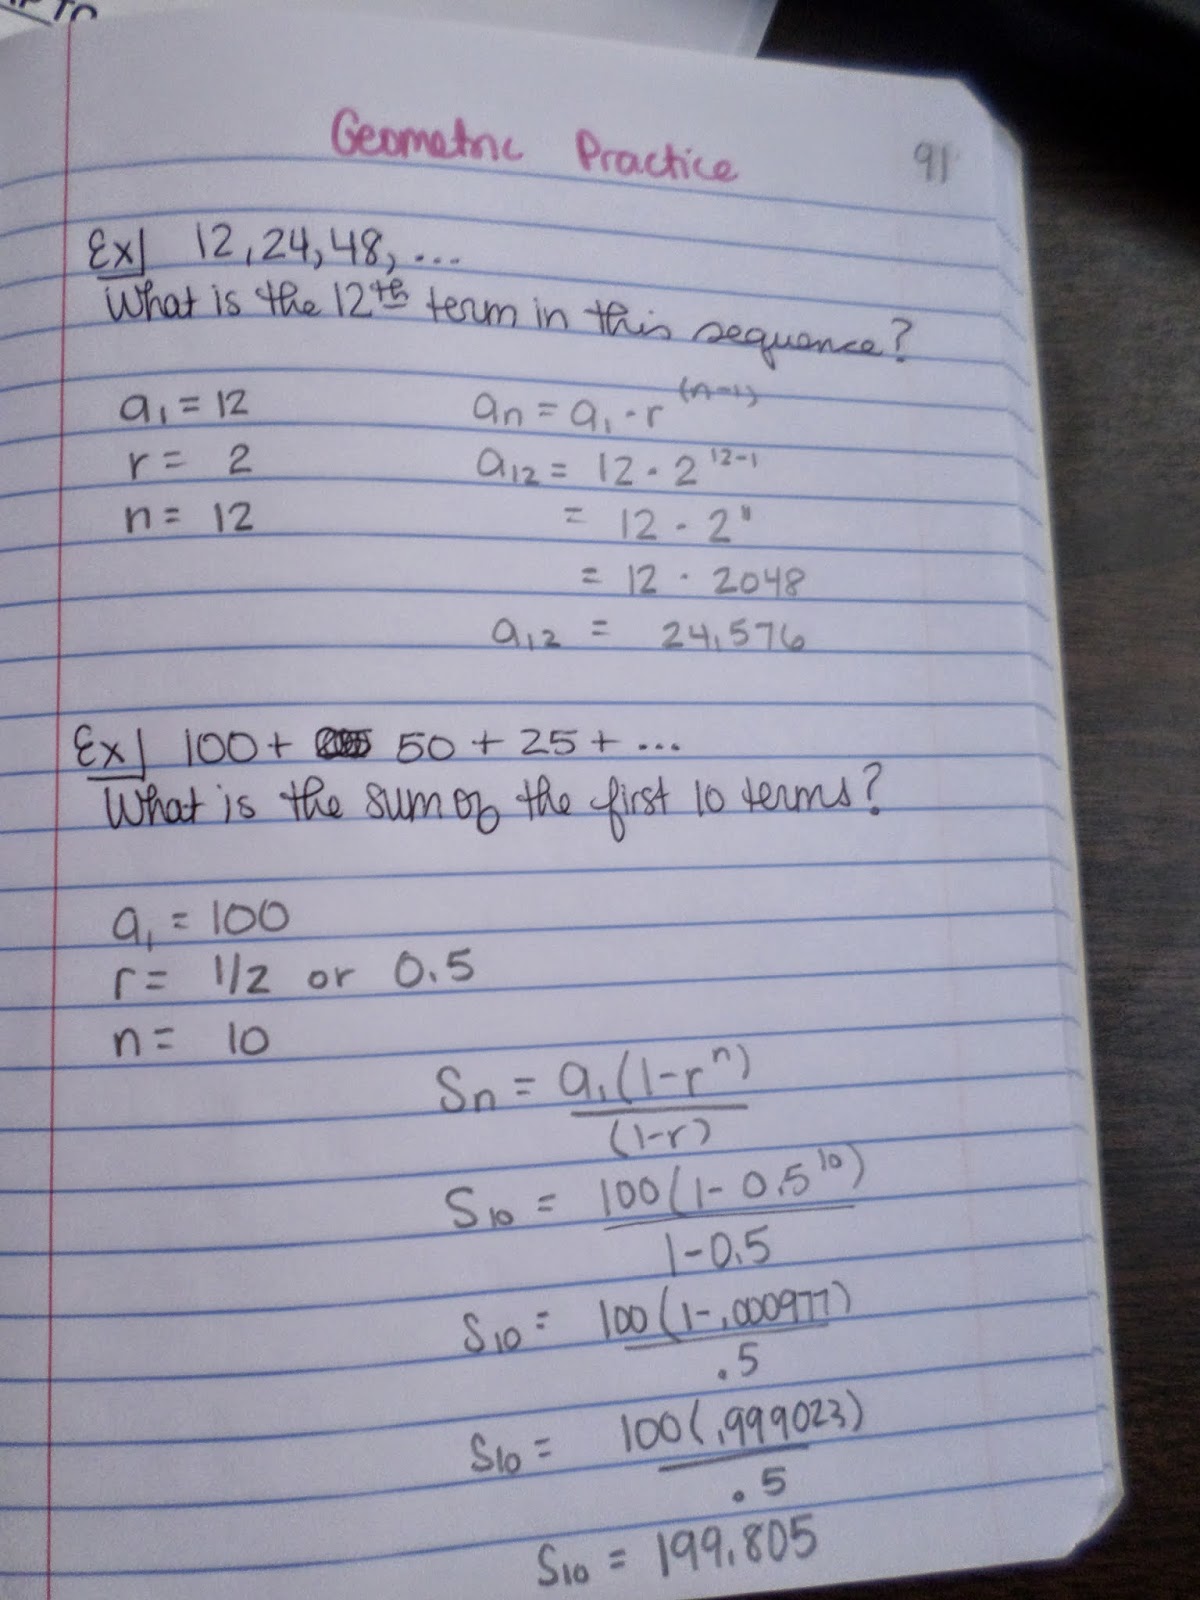 Geometric Practice 91
Ex] 12, 24, 48, ...
What is the 12th term in this sequence?
a₁ = 12 aₙ = a₁ · r⁽ⁿ⁻¹⁾
r = 2 a₁₂ = 12 · 2¹²⁻¹
n = 12 = 12 · 2¹¹
= 12 · 2048
a₁₂ = 24,576
Ex] 100 + 50 + 25 + ...
What is the sum of the first 10 terms?
a₁ = 100
r = 1/2 or 0.5
n = 10
Sₙ = a₁(1-rⁿ)
(1-r)
S₁₀ = 100(1-0.5¹⁰)
1-0.5
S₁₀ = 100(1-.000977)
.5
S₁₀ = 100(.999023)
.5
S₁₀ = 199.805